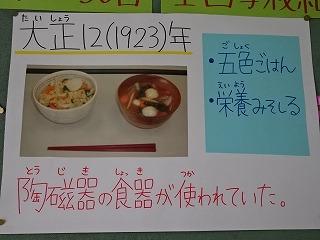 たいしょう
大正12(1923)年
ごしょく
・五色ごはん
えいよう
・栄養みそしる
とうじき しょっき つか
陶磁器の食器が使われていた。